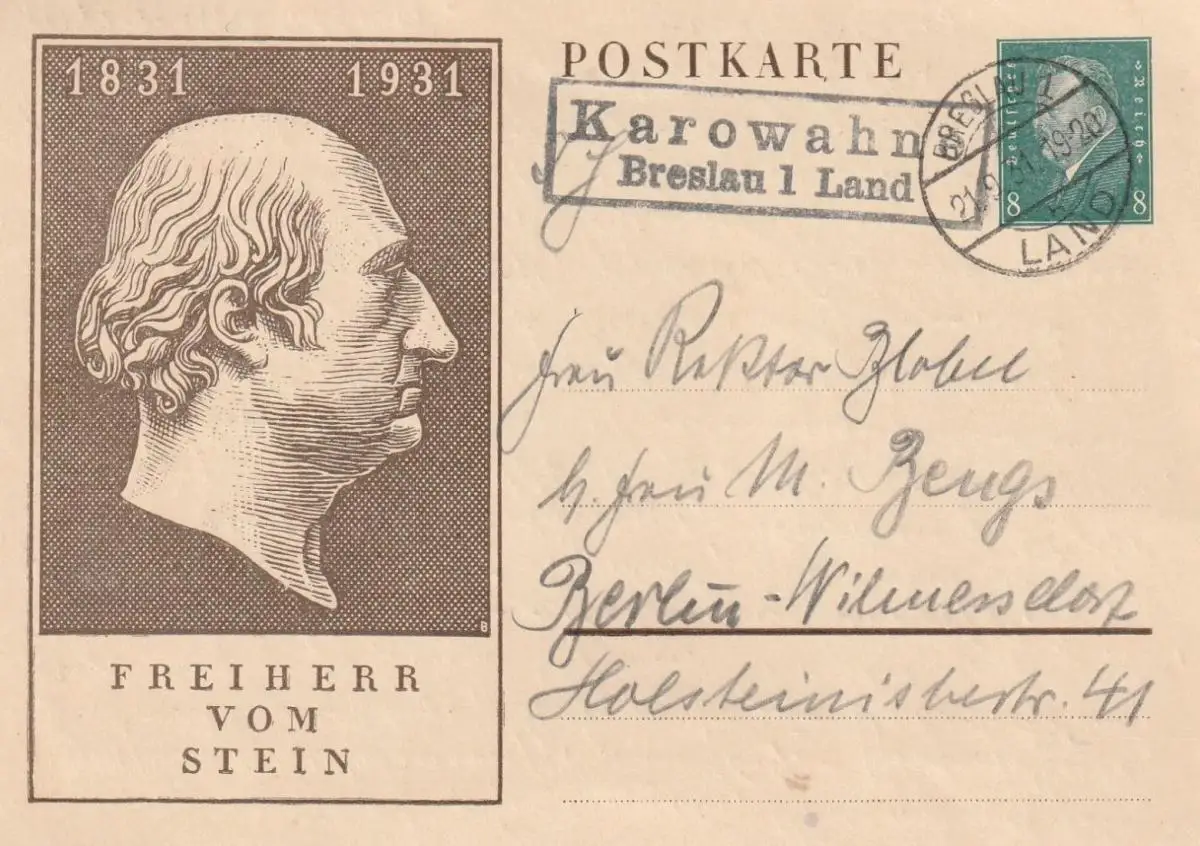 1831 1931
FREIHERR
VOM
STEIN
POSTKARTE
Karowahn
Breslau 1 Land
BRESLAU 1
21.9.31.19-20
LAND
Deutsches
Reich
8 8
Frau Rektor Zlobel
b. Frau M. Bengs
Berlin-Wilmersdorf
Holsteinischestr. 41